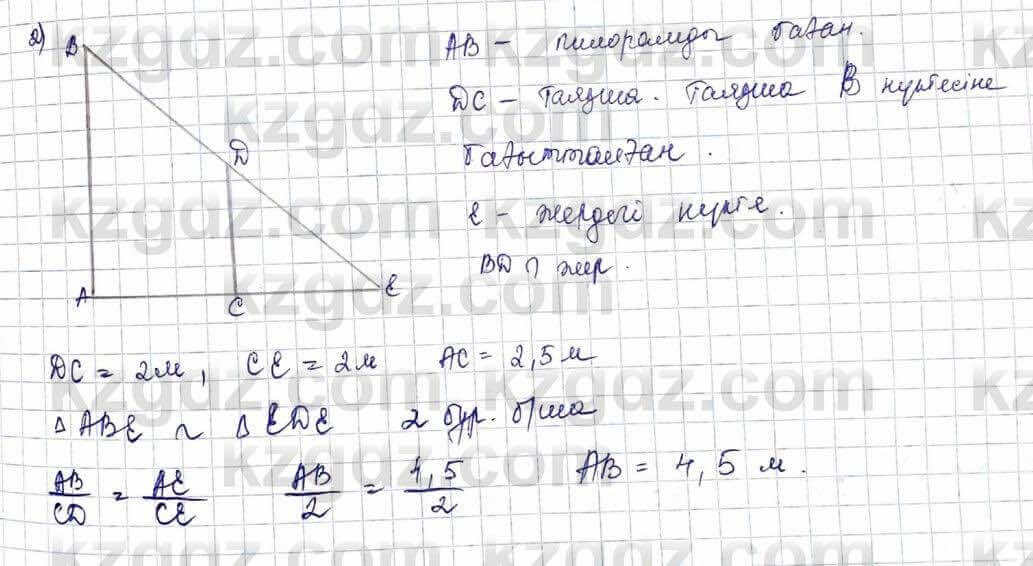 2) B
AB – пилорамды бағаn.
DC – Таяқша. Таяқша B нүктесіне
бағытталған.
E – жердегі нүкте.
BD ∩ жер.
D
A
C
E
DC = 2м, CE = 2м AC = 2,5м
Δ ABE ~ Δ EDE 2 бұр. б/ша
AB/CD = AE/CE AB/2 = 4,5/2 AB = 4,5 м.
kzgdz.com